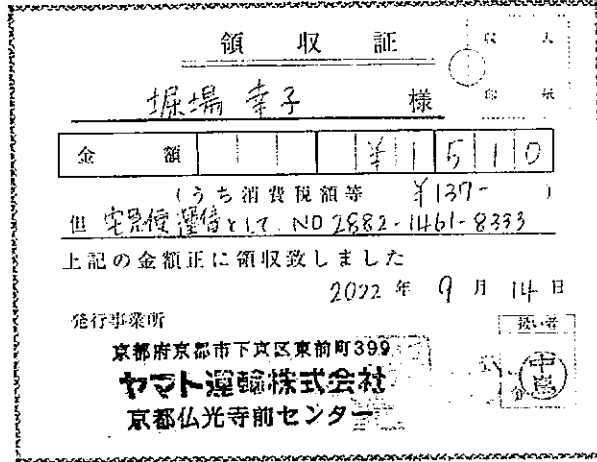 領収証
収入印紙
堀場 幸子 様
金額 ¥1510
(うち消費税額等 ¥137-)
但 宅急便運賃として NO 2882-1461-8333
上記の金額正に領収致しました
2022年 9月 14日
発行事業所
扱い者
京都府京都市下京区東前町399
ヤマト運輸株式会社
京都仏光寺前センター